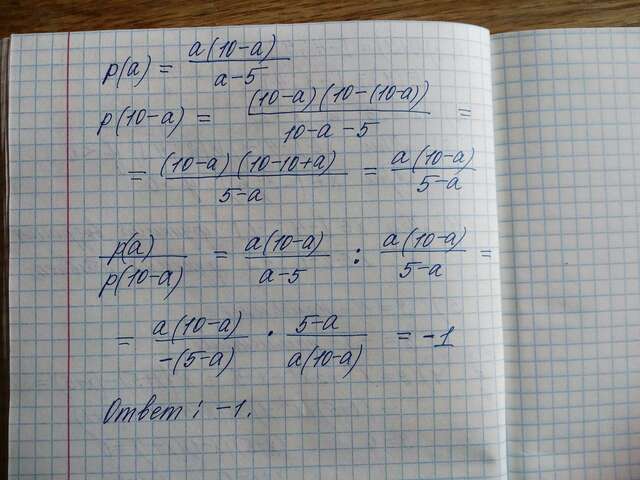 p(a) = a(10-a) / a-5
p(10-a) = (10-a)(10-(10-a)) / 10-a-5 =
= (10-a)(10-10+a) / 5-a = a(10-a) / 5-a
p(a) / p(10-a) = a(10-a) / a-5 : a(10-a) / 5-a =
= a(10-a) / -(5-a) · 5-a / a(10-a) = -1
Ответ: -1.